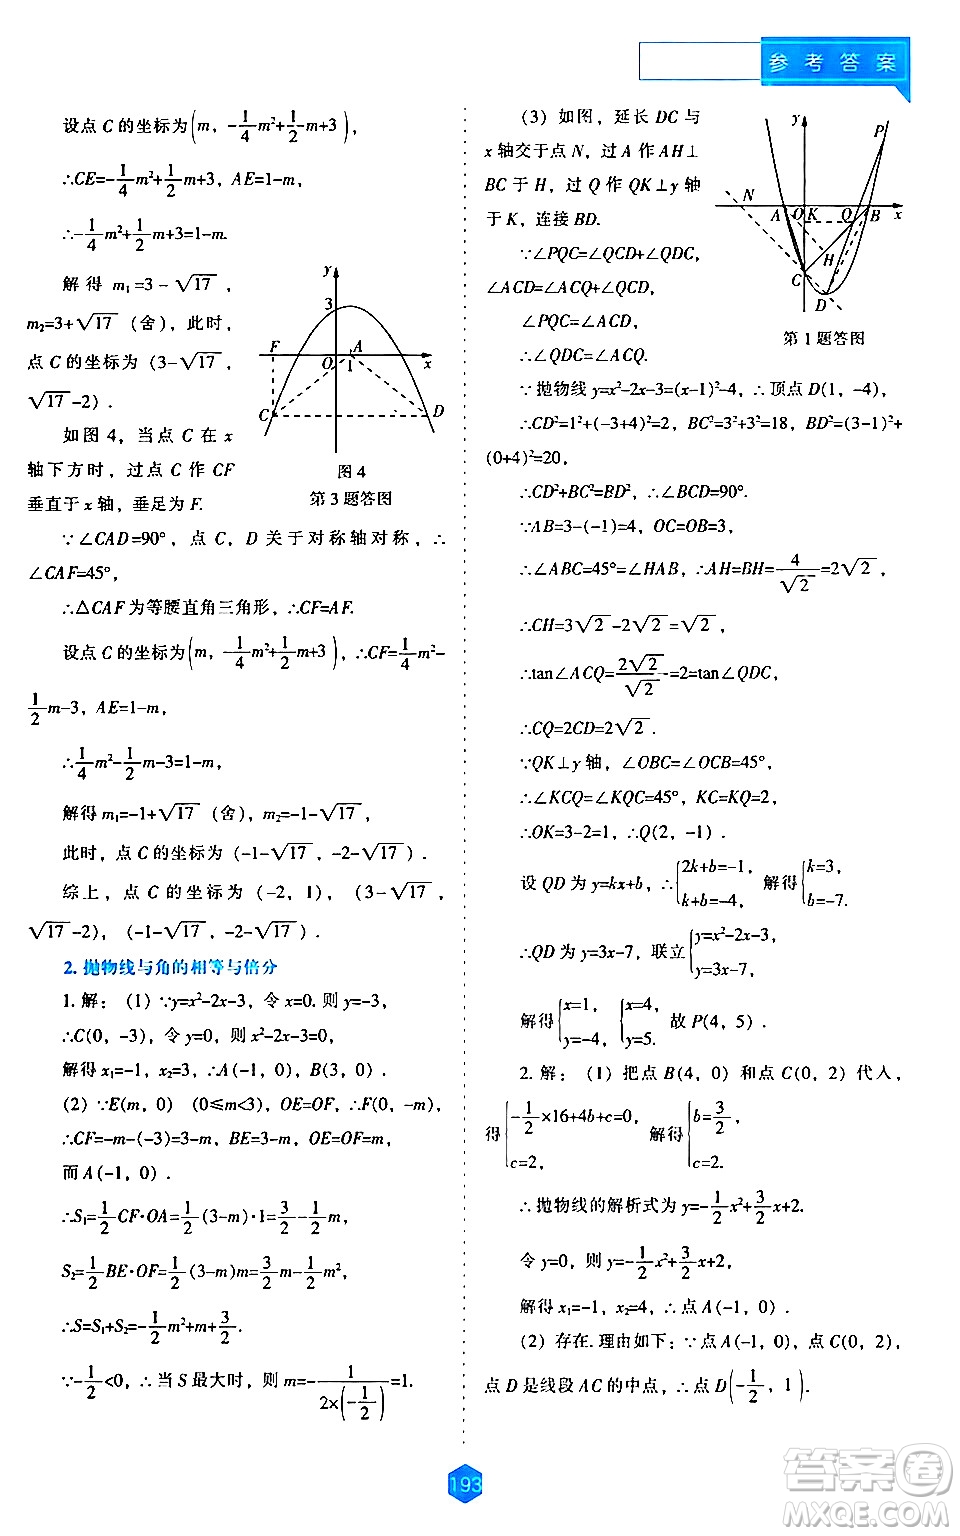 参考答案
设点 C 的坐标为(m, -1/4m²+1/2m+3),
∴CE=-1/4m²+1/2m+3, AE=1-m,
∴-1/4m²+1/2m+3=1-m.
解得 m₁=3-√17,
m₂=3+√17 (舍), 此时,
点 C 的坐标为 (3-√17,
√17-2).
如图 4, 当点 C 在 x
轴下方时, 过点 C 作 CF
垂直于 x 轴, 垂足为 F.
y
3
F
A
O
1
x
C
D
图 4
第 3 题答图
∵∠CAD=90°, 点 C, D 关于对称轴对称, ∴
∠CAF=45°,
∴△CAF 为等腰直角三角形, ∴CF=AF.
设点 C 的坐标为(m, -1/4m²+1/2m+3), ∴CF=1/4m²-
1/2m-3, AE=1-m,
∴1/4m²-1/2m-3=1-m,
解得 m₁=-1+√17 (舍), m₂=-1-√17,
此时, 点 C 的坐标为 (-1-√17, -2-√17).
综上, 点 C 的坐标为 (-2, 1), (3-√17,
√17-2), (-1-√17, -2-√17).
2. 抛物线与角的相等与倍分
1. 解: (1) ∵y=x²-2x-3, 令 x=0. 则 y=-3,
∴C(0, -3), 令 y=0, 则 x²-2x-3=0,
解得 x₁=-1, x₂=3, ∴A(-1, 0), B(3, 0).
(2) ∵E(m, 0) (0≤m<3), OE=OF, ∴F(0, -m),
∴CF=-m-(-3)=3-m, BE=3-m, OE=OF=m,
而 A(-1, 0).
∴S₁=1/2CF·OA=1/2(3-m)·1=3/2-1/2m,
S₂=1/2BE·OF=1/2(3-m)m=3/2m-1/2m²,
∴S=S₁+S₂=-1/2m²+m+3/2.
∵-1/2<0, ∴当 S 最大时, 则 m=-1/(2×(-1/2))=1.
(3) 如图, 延长 DC 与
x 轴交于点 N, 过 A 作 AH⊥
BC 于 H, 过 Q 作 QK⊥y 轴
于 K, 连接 BD.
∵∠PQC=∠QCD+∠QDC,
∠ACD=∠ACQ+∠QCD,
∠PQC=∠ACD,
∴∠QDC=∠ACQ.
y
P
N
A
O
K
Q
B
x
H
C
D
第 1 题答图
∵抛物线 y=x²-2x-3=(x-1)²-4, ∴顶点 D(1, -4),
∴CD²=1²+(-3+4)²=2, BC²=3²+3²=18, BD²=(3-1)²+
(0+4)²=20,
∴CD²+BC²=BD², ∴∠BCD=90°.
∵AB=3-(-1)=4, OC=OB=3,
∴∠ABC=45°=∠HAB, ∴AH=BH=4/√2=2√2,
∴CH=3√2-2√2=√2,
∴tan∠ACQ=2√2/√2=2=tan∠QDC,
∴CQ=2CD=2√2.
∵QK⊥y 轴, ∠OBC=∠OCB=45°,
∴∠KCQ=∠KQC=45°, KC=KQ=2,
∴OK=3-2=1, ∴Q(2, -1).
设 QD 为 y=kx+b, ∴{2k+b=-1, k+b=-4, 解得{k=3, b=-7.
∴QD 为 y=3x-7, 联立{y=x²-2x-3, y=3x-7,
解得{x=1, y=-4, {x=4, y=5. 故 P(4, 5).
2. 解: (1) 把点 B(4, 0) 和点 C(0, 2) 代入,
得{-1/2×16+4b+c=0, c=2, 解得{b=3/2, c=2.
∴抛物线的解析式为 y=-1/2x²+3/2x+2.
令 y=0, 则 y=-1/2x²+3/2x+2,
解得 x₁=-1, x₂=4, ∴点 A(-1, 0).
(2) 存在. 理由如下: ∵点 A(-1, 0), 点 C(0, 2),
点 D 是线段 AC 的中点, ∴点 D(-1/2, 1).
193
答案圈
MXQE.COM